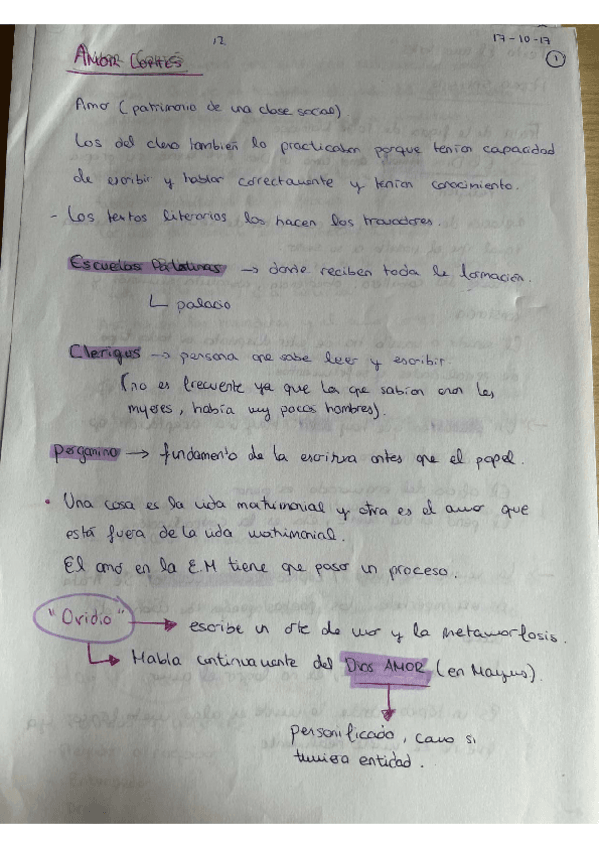 12
17-10-17
1
AMOR CORTÉS
Amor (patrimonio de una clase social).
Los del clero también lo practicaban porque tenían capacidad
de escribir y hablar correctamente y tenían conocimiento.
- Los textos literarios los hacen los trovadores.
Escuelas Palatinas → donde reciben toda la formación.
↳ palacio
Clerigus → persona que sabe leer y escribir.
(no es frecuente ya que las que sabían eran las
mujeres, había muy pocos hombres).
Pergamino → fundamento de la escritura antes que el papel.
• Una cosa es la vida matrimonial y otra es el amor que
está fuera de la vida matrimonial.
El amor en la E.M tiene que pasar un proceso.
"Ovidio" → escribe un arte de amor y la metamorfosis.
↳ Habla continuamente del Dios AMOR (en Mayus).
personificado, como si
tuviera entidad.